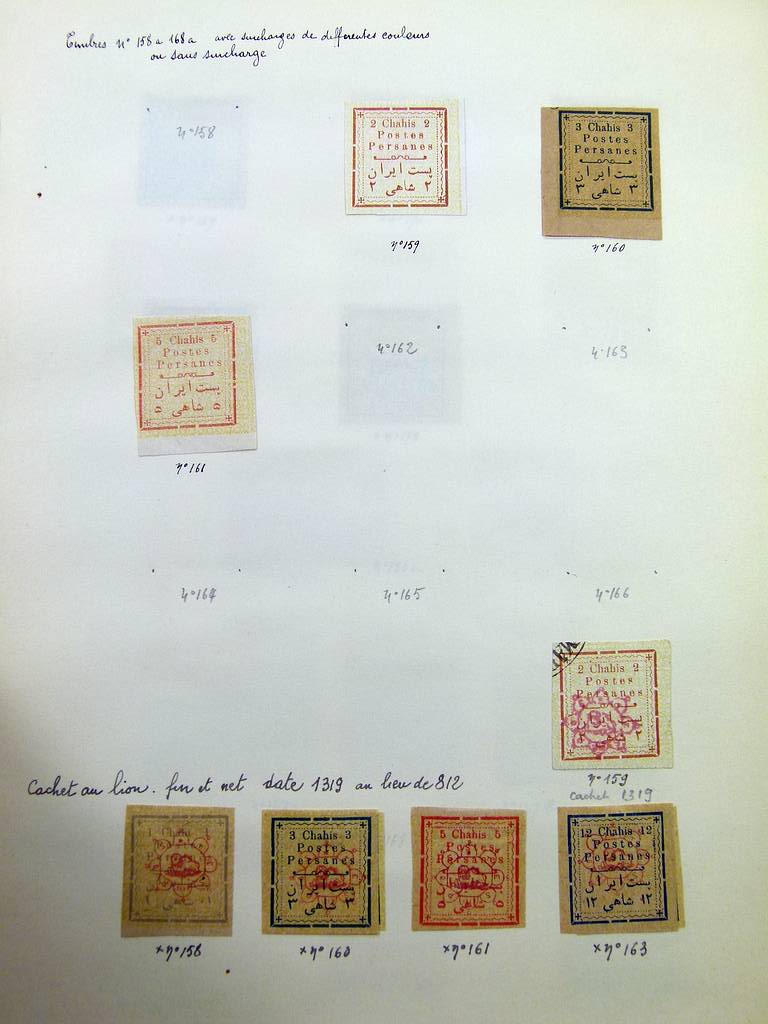 Timbres n° 158 a 168a avec surcharges de differentes couleurs
ou sans surcharge
n°158
2 Chahis 2
Postes
Persanes
پست ایران
۲ شاهی ۲
n°159
3 Chahis 3
Postes
Persanes
پست ایران
۳ شاهی ۳
n°160
5 Chahis 5
Postes
Persanes
پست ایران
۵ شاهی ۵
n°161
n°162
n°163
n°164
n°165
n°166
2 Chahis 2
Postes
Persanes
پست ایران
۲
n°159
cachet 1319
Cachet au lion. fin et net date 1319 au lieu de 812
1 Chahi
x n°158
3 Chahis 3
Postes
Persanes
پست ایران
۳ شاهی ۳
x n°160
5 Chahis 5
Postes
Persanes
۵ شاهی ۵
x n°161
12 Chahis 12
Postes
Persanes
پست ایران
۱۲ شاهی ۱۲
x n°163